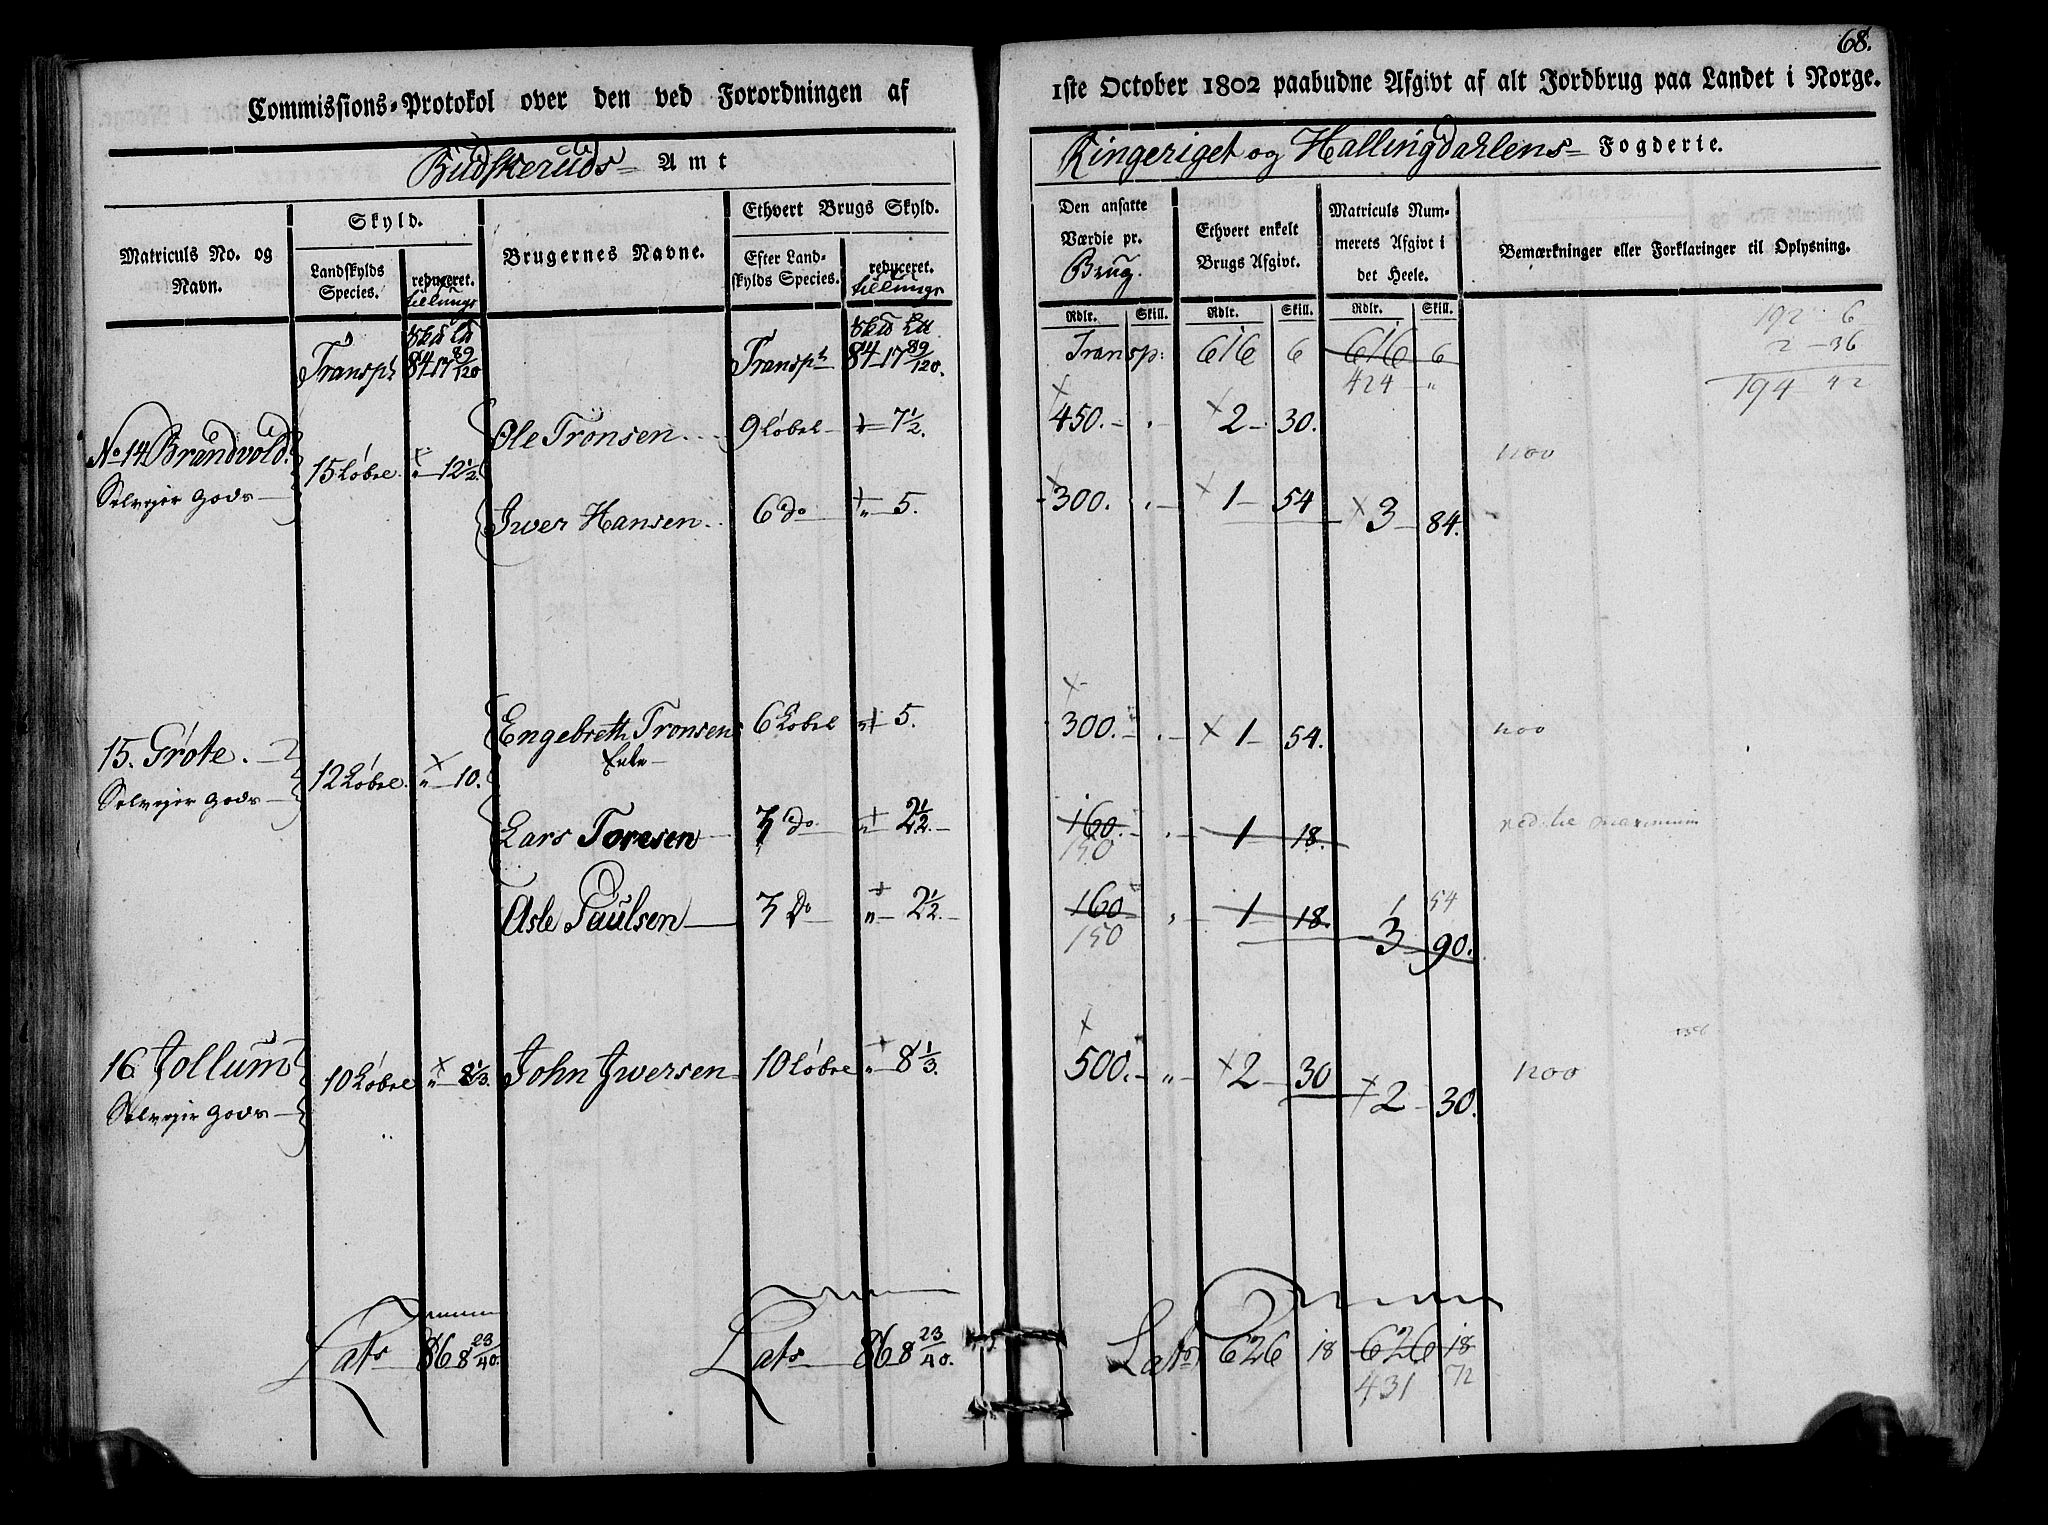 68.
Commissions-Protokol over den ved Forordningen af 1ste October 1802 paabudne Afgivt af alt Jordbrug paa Landet i Norge.
Budskeruds Amt
Ringeriget og Hallingdahlens Fogderie.
Matriculs No. og Navn.
Skyld.
Landskylds Species.
reduceret.
tillungs
Brugernes Navne.
Ethvert Brugs Skyld.
Efter Landskylds Species.
reduceret.
tillungs
Den ansatte Værdie pr. Brug.
Ethvert enkelt Brugs Afgivt.
Matriculs Nummerets Afgivt i det Heele.
Bemærkninger eller Forklaringer til Oplysning.
Rdlr. Skill. Rdlr. Skill. Rdlr. Skill.
Transpt 84 17 89/120 Transpt 84 17 89/120. Transp: 616 6 616 6
424 "
192 6
2 36
194 42
No 14 Brandvold. 15 Løbe. " 12½.
Selveier Gods
Ole Tronsen 9 Løbe 7½. 450. 2 30.
Iwer Hansen 6 do " 5. 300. 1 54 3 84.
15. Grøte. 12 Løbe. " 10.
Selveier Gods
Engebreth Tronsens Enke 6 Løbe 5. 300. 1 54.
Lars Toresen 3 do 2½. 160. 1 18.
150
Asle Paulsen 3 Do " 2½. 160 1 18. 3 90.
150
1 54
16. Jollum 10 Løbe " 8⅓.
Selveier Gods
John Iwersen 10 Løbe " 8⅓. 500. " 2 30 2 30.
Lats 86 8 23/40. Lats 86 8 23/40. Lats 626 18 626 18
431 72